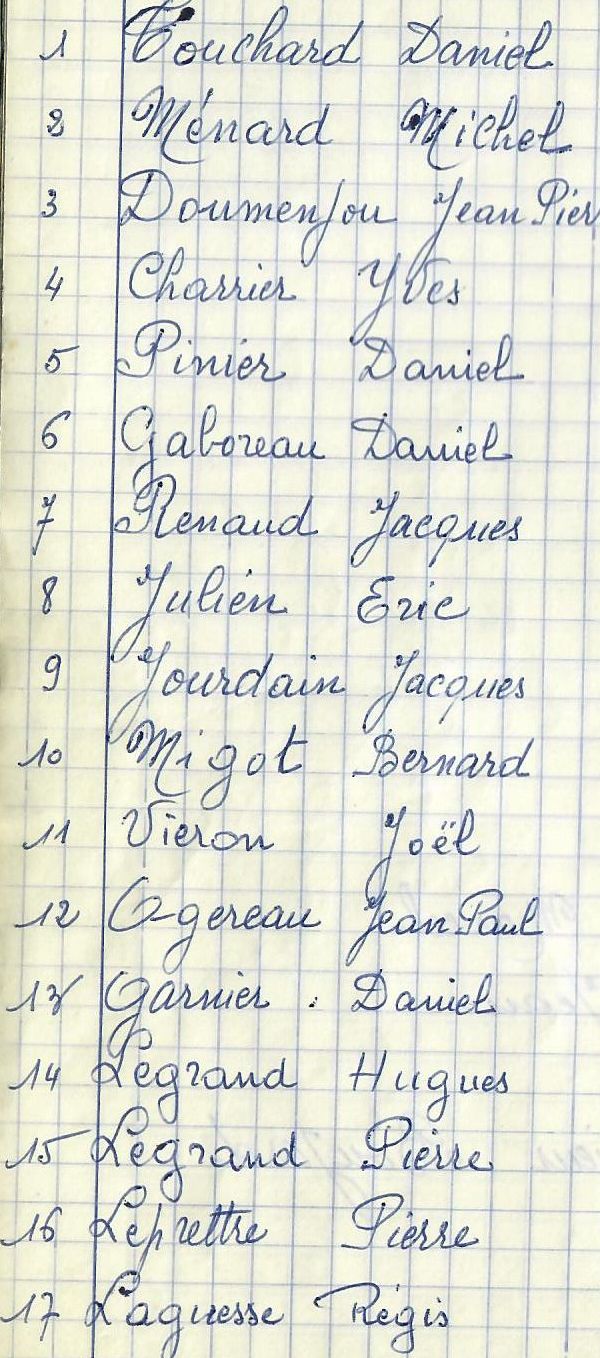 1 Touchard Daniel
2 Ménard Michel
3 Doumenjou Jean Pier
4 Charrier Yves
5 Pinier Daniel
6 Gaboreau Daniel
7 Renaud Jacques
8 Julien Eric
9 Jourdain Jacques
10 Migot Bernard
11 Vieron Joël
12 Ogereau Jean Paul
13 Garnier . Daniel
14 Legrand Hugues
15 Legrand Pierre
16 Leprettre Pierre
17 Laguesse Régis